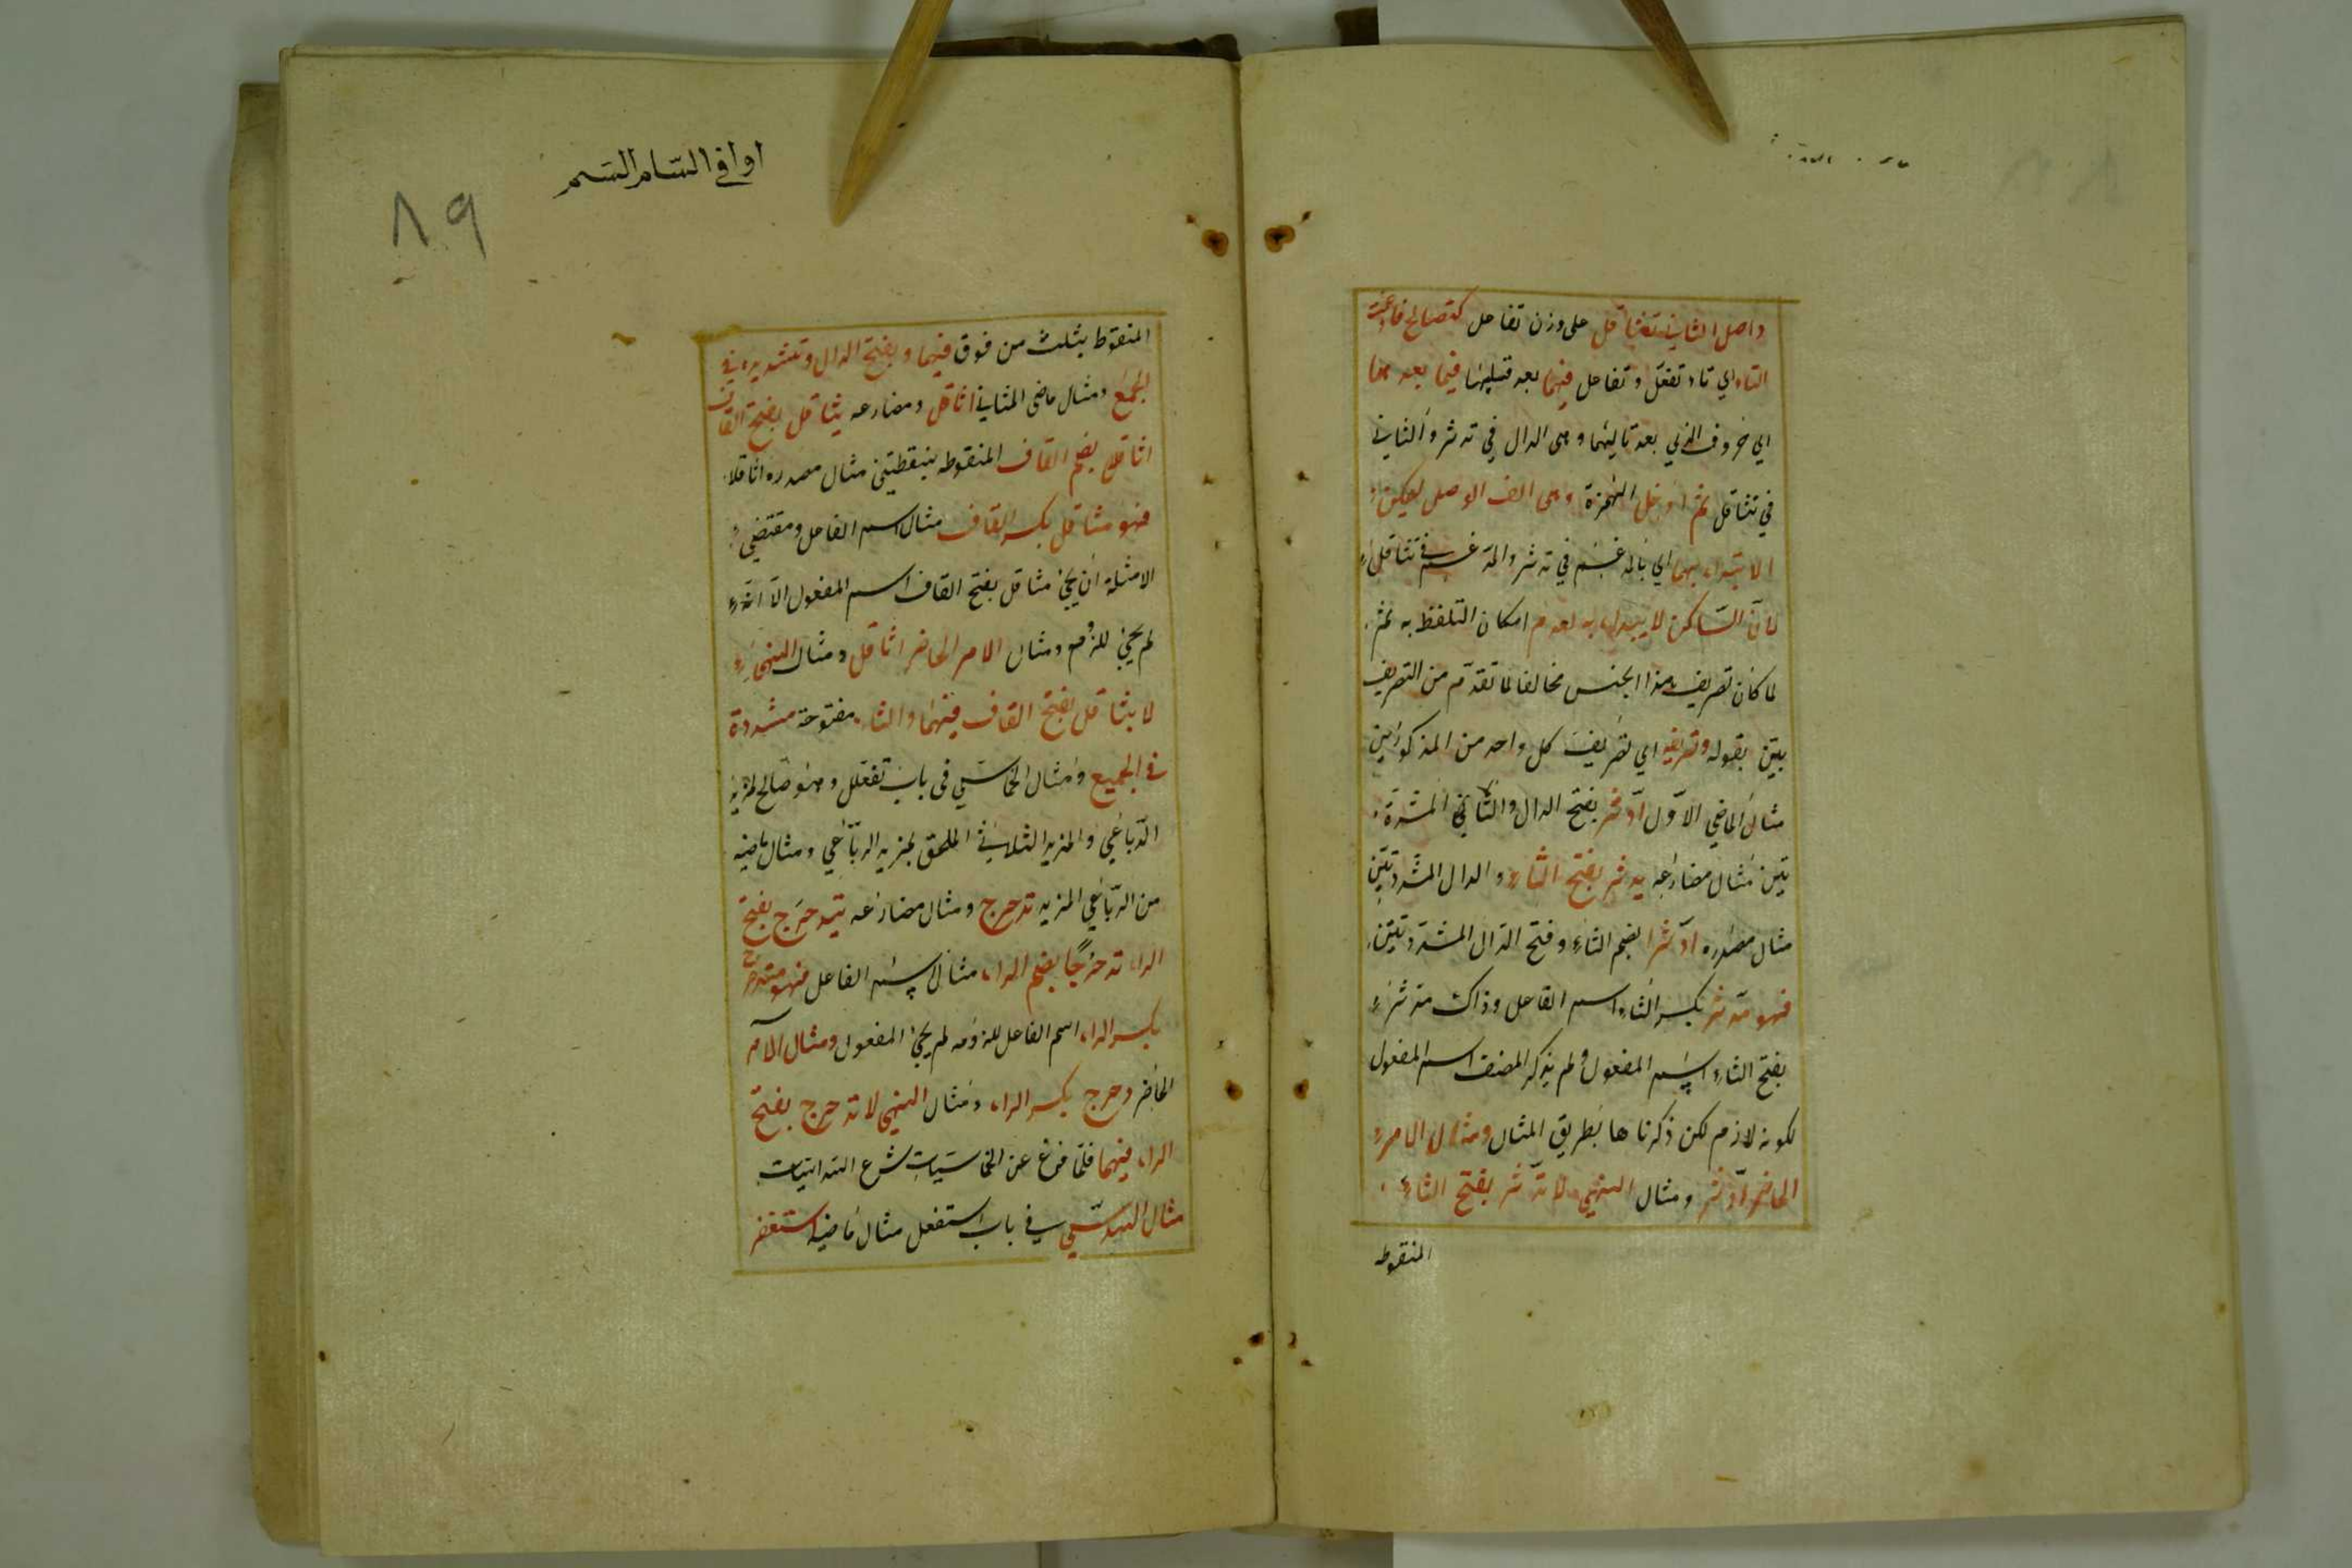 واصل الثاني تثاقل على وزن تفاعل كتصالح فادغمت
التاء اي تاء تفعّل وتفاعل فيهما بعد قبلها فيما بعدهما
اي حروف الذي بعد تائيهما وهي الدال في تدثر والثاني
في تثاقل ثم ادخل الهمزة وهي الف الوصل ليمكن
الابتداء بهما اي بالمدغم في تدثر والمدغم في تثاقل
لأنّ السّاكن لا يبتداء به لعدم امكان التلفظ به ثم
لما كان تصريف هذا الجنس مخالفا لما تقدّم من التصريف
بيّن بقوله وتصريفه اي تصريف كل واحد من المذكورين
مثال الماضي الاوّل ادّثر بفتح الدال والثاني المشدّد
تين مثال مضارعه يدثر بفتح الثاء والدال المشدّدتين
مثال مصدره ادّثرا بضم الثاء وفتح الدّال المشدّدتين
فهو مدّثر بكسر الثاء اسم الفاعل وذاك مدثر
بفتح الثاء اسم المفعول ولم يذكر المصنف اسم المفعول
لكونه لازم لكن ذكرناها بطريق المثال ومثال الامر
الحاضر ادّثر ومثال النهي لا تدّثر بفتح الثاء
المنقوطه
اوافي السّام السّم
٨٩
المنقوط بثلث من فوق فيهما وبفتح الدال وتشديده في
الجمع ومثال ماضى الثاني اثاقل ومضارعه يثاقل بفتح القاف
اثاقلا بضم القاف المنقوطه بنقطتين مثال مصدره اثاقلا
فهو مثاقل بكسر القاف مثال اسم الفاعل ومقتضى
الامثلة ان يجئ مثاقل بفتح القاف اسم المفعول الّا انّه
لم يجئ للزوم ومثال الامر الحاضر اثاقل ومثال النهى
لا يثاقل بفتح القاف فيهما والثاء مفتوحة مشددة
في الجميع ومثال الخماسّي في باب تفعلل وهو صالح لمزيد
الرّباعي والمزيد الثلاثي الملحق بمزيد الرّباعي ومثال ماضيه
من الرّباعي المزيد تدحرج ومثال مضارعه يتدحرج بفتح
الراء تدحرجًا بضم الراء مثال لاسم الفاعل فهو متدحرج
بكسر الراء اسم الفاعل للزومه لم يجئ المفعول ومثال الامر
الحاضر دحرج بكسر الراء ومثال النهى لا تدحرج بفتح
الراء فيهما فلمّا فرغ عن الخماسيات شرع السداسيات
مثال السداسّي في باب استفعل مثال ماضيه استغفر